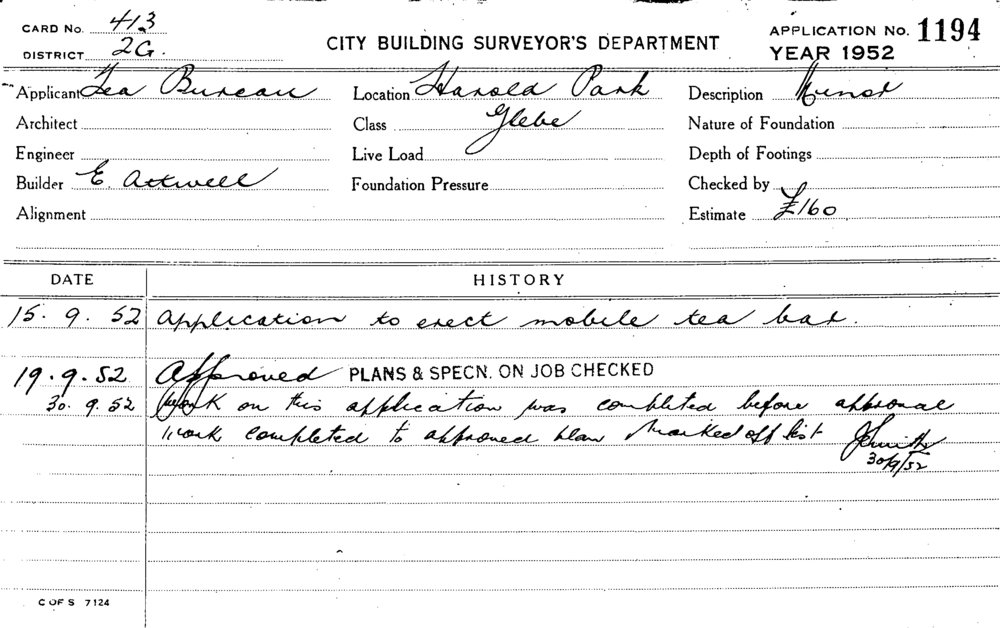 CARD No. 413
DISTRICT 2G.
CITY BUILDING SURVEYOR'S DEPARTMENT
APPLICATION No. 1194
YEAR 1952
Applicant Tea Bureau
Location Harold Park
Description Minor
Architect
Class Glebe
Nature of Foundation
Engineer
Live Load
Depth of Footings
Builder E. Attwell
Foundation Pressure
Checked by
Alignment
Estimate £160
DATE HISTORY
15. 9. 52 Application to erect mobile tea bar.
19. 9. 52 Approved PLANS & SPECN. ON JOB CHECKED
30. 9. 52 Work on this application was completed before approval
Work completed to approved plan Marked off list
30/9/52
C OF S 7124